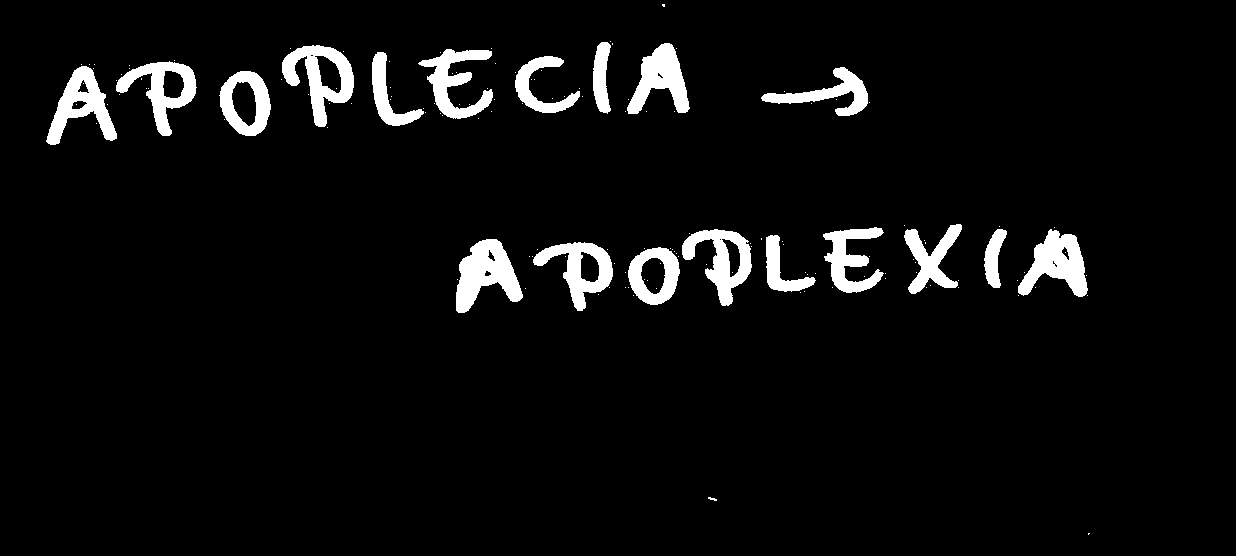 APOPLECIA →
APOPLEXIA